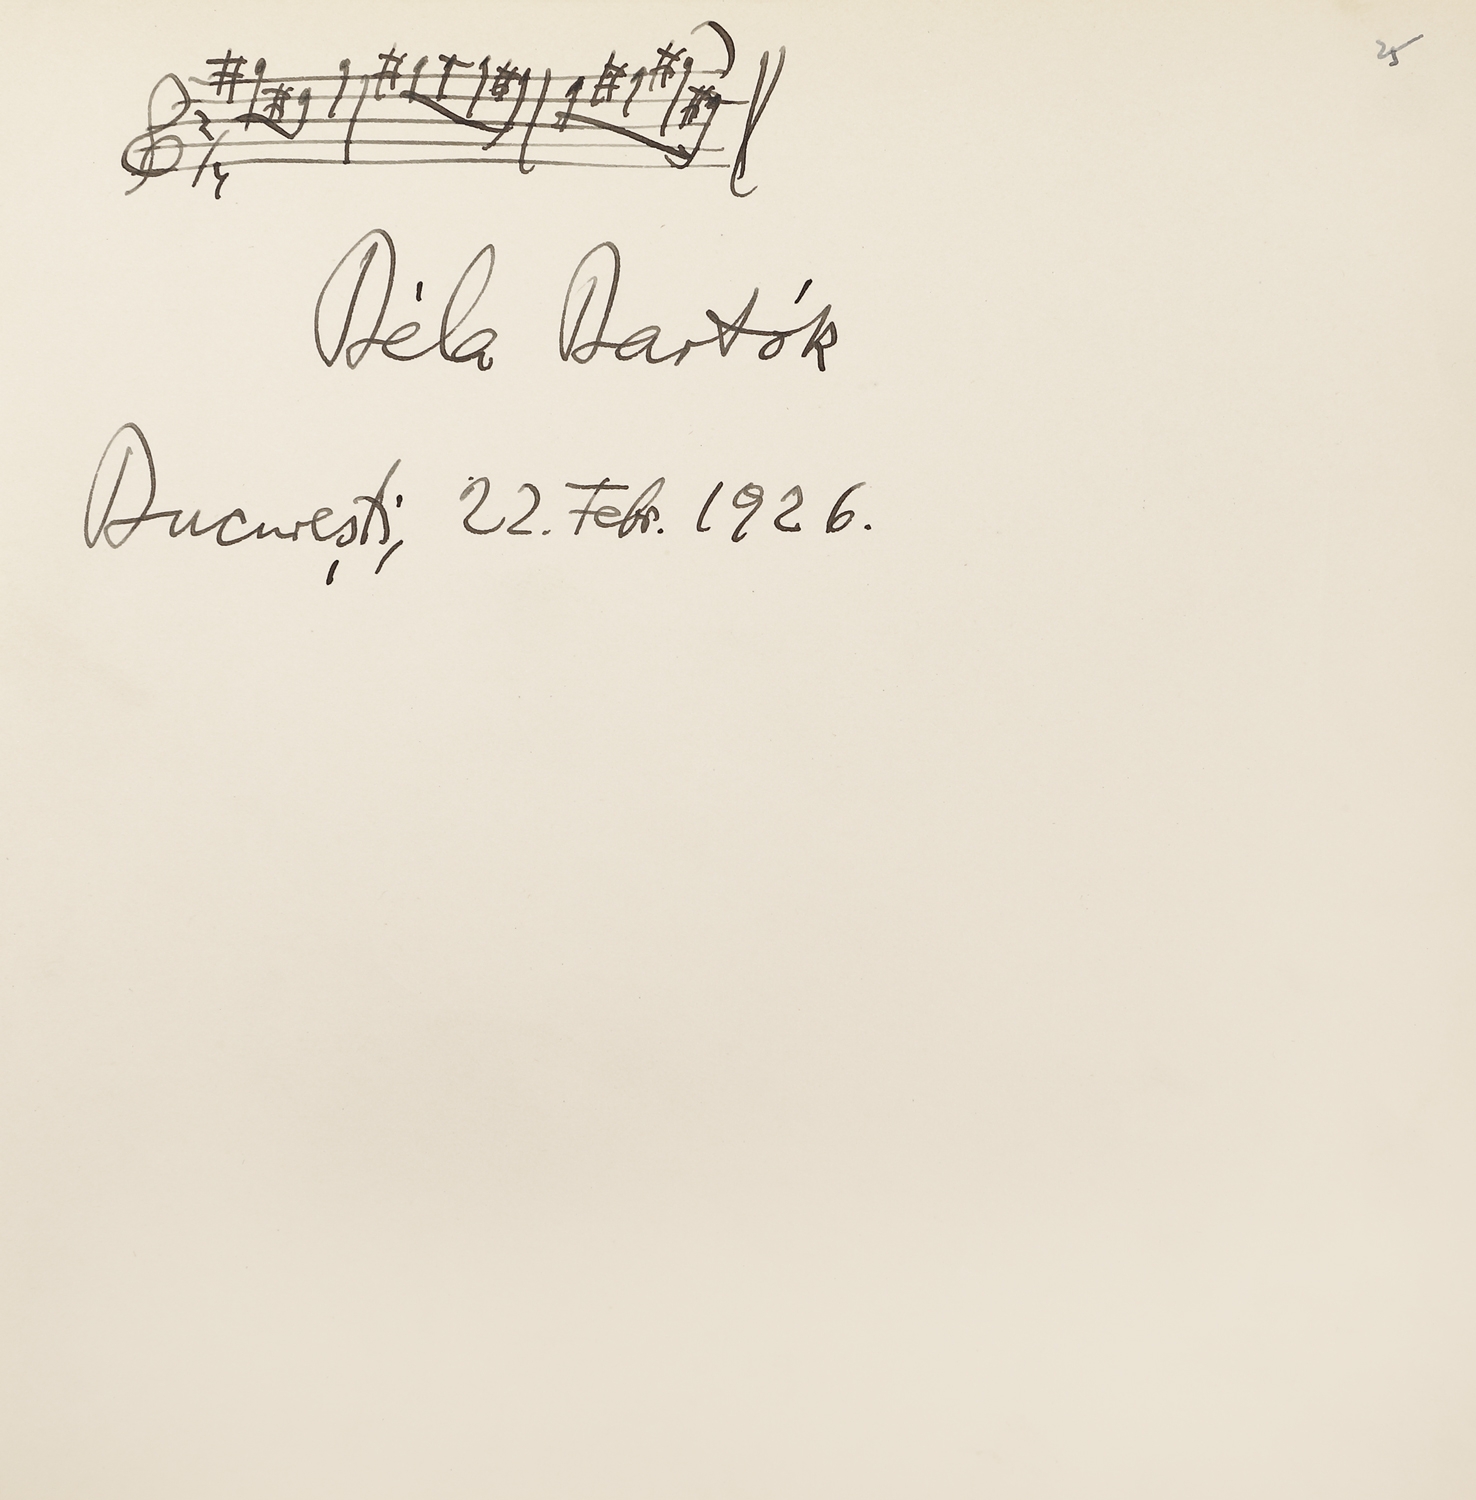 25
2/4
Béla Bartók
București, 22. Febr. 1926.